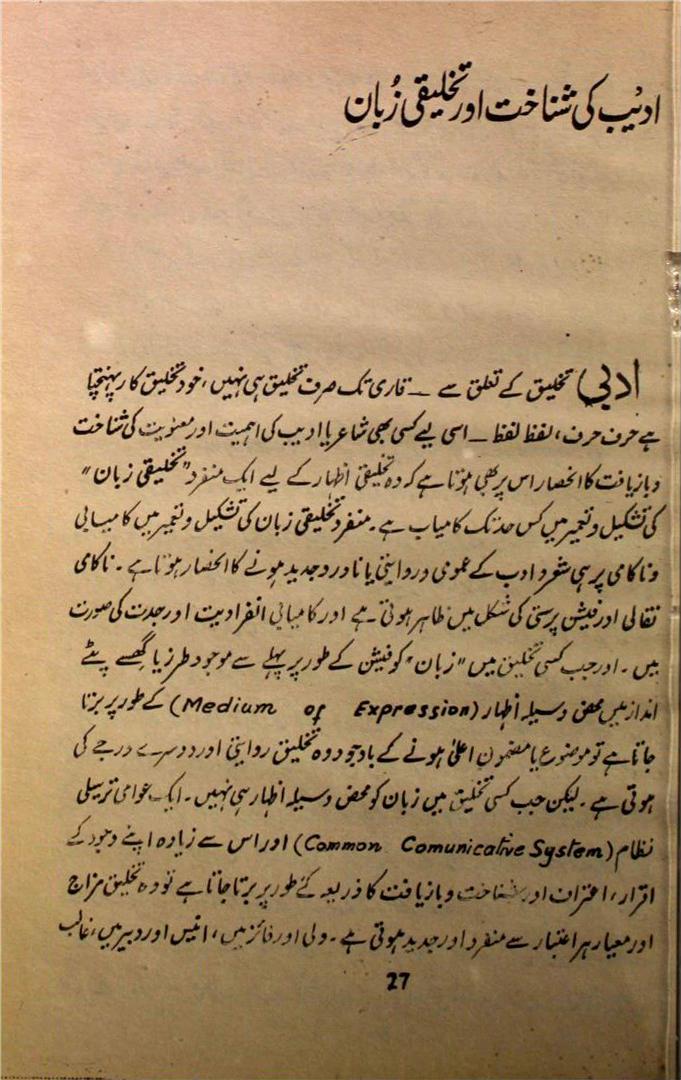 ادیب کی شناخت اور تخلیقی زُبان
ادبی تخلیق کے تعلق سے ــ قاری تک صرف تخلیق ہی نہیں، خود تخلیق کار پہنچتا
ہے حرف حرف، لفظ لفظ ــ اسی لیے کسی بھی شاعر یا ادیب کی اہمیت اور معنویت کی شناخت
و بازیافت کا انحصار اس پر بھی ہوتا ہے کہ وہ تخلیقی اظہار کے لیے ایک منفرد "تخلیقی زبان"
کی تشکیل و تعمیر میں کس حد تک کامیاب ہے۔ منفرد تخلیقی زبان کی تشکیل و تعمیر میں کامیابی
و ناکامی پر ہی شعر و ادب کے عمومی و روایتی یا نادر و جدید ہونے کا انحصار ہوتا ہے۔ ناکامی
نقالی اور فیشن پرستی کی شکل میں ظاہر ہوتی ہے اور کامیابی انفرادیت اور جدت کی صورت
میں۔ اور جب کسی تخلیق میں "زبان" کو فیشن کے طور پر پہلے سے موجود طرز یا گھسے پٹے
انداز میں محض وسیلہ اظہار (Medium of Expression) کے طور پر برتا
جاتا ہے تو موضوع یا مضمون اعلیٰ ہونے کے باوجود وہ تخلیق روایتی اور دوسرے درجے کی
ہوتی ہے۔ لیکن جب کسی تخلیق میں زبان کو محض وسیلہ اظہار ہی نہیں۔ ایک عوامی ترسیلی
نظام (Common Comunicative System) اور اس سے زیادہ اپنے وجود کے
اقرار، اعتراف اور شناخت و بازیافت کا ذریعہ کے طور پر برتا جاتا ہے تو وہ تخلیق مزاج
اور معیار ہر اعتبار سے منفرد اور جدید ہوتی ہے۔ ولی اور فائز میں، انیس اور دبیر میں، غالب
27